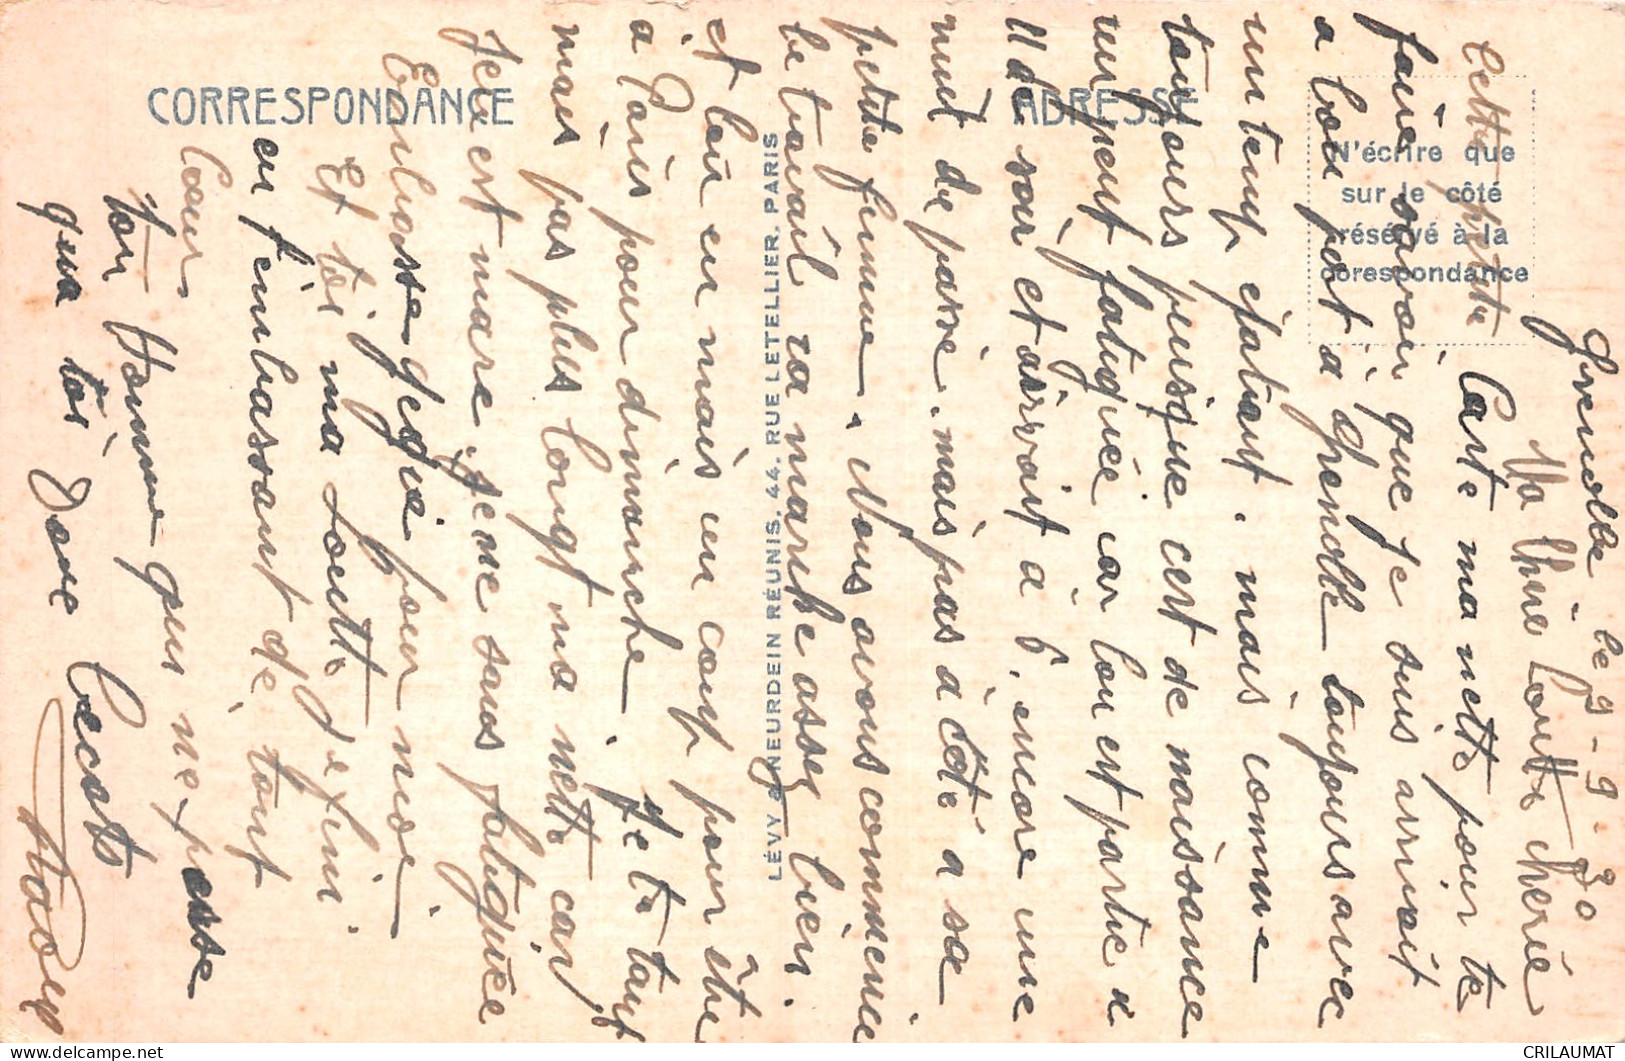 CORRESPONDANCE
ADRESSE
N'écrire que
sur le côté
réservé à la
corespondance
LÉVY & NEURDEIN RÉUNIS, 44, RUE LETELLIER, PARIS
Grenoble le 9-9-30
Ma chère Loutte cherie
Cette petite Carte ma nette pour te
faire savoir que je suis arrivait
a bon port à Grenoble toujours avec
un temp épatant. mais comme
toujours puisque cest de naissance
un peut fatiguée car lon est partie a
11 de soir et arrivait a 6, encore une
nuit de passé. mais pas à côté a sa
petite femme. Nous avons commencé
le travail sa marche assez bien.
et bon en mais un coup pour être
a Paris pour dimanche. Je te tant
mais pas plus longt ma nette car
Je est mare, je ne sans fatiguée
Embrasse gegie pour moi.
Et toi ma Loutte Je fini
en tembrassant de tout
Coeur
ton Homme qui ne pense
qua toi
Cecots
CRILAUMAT